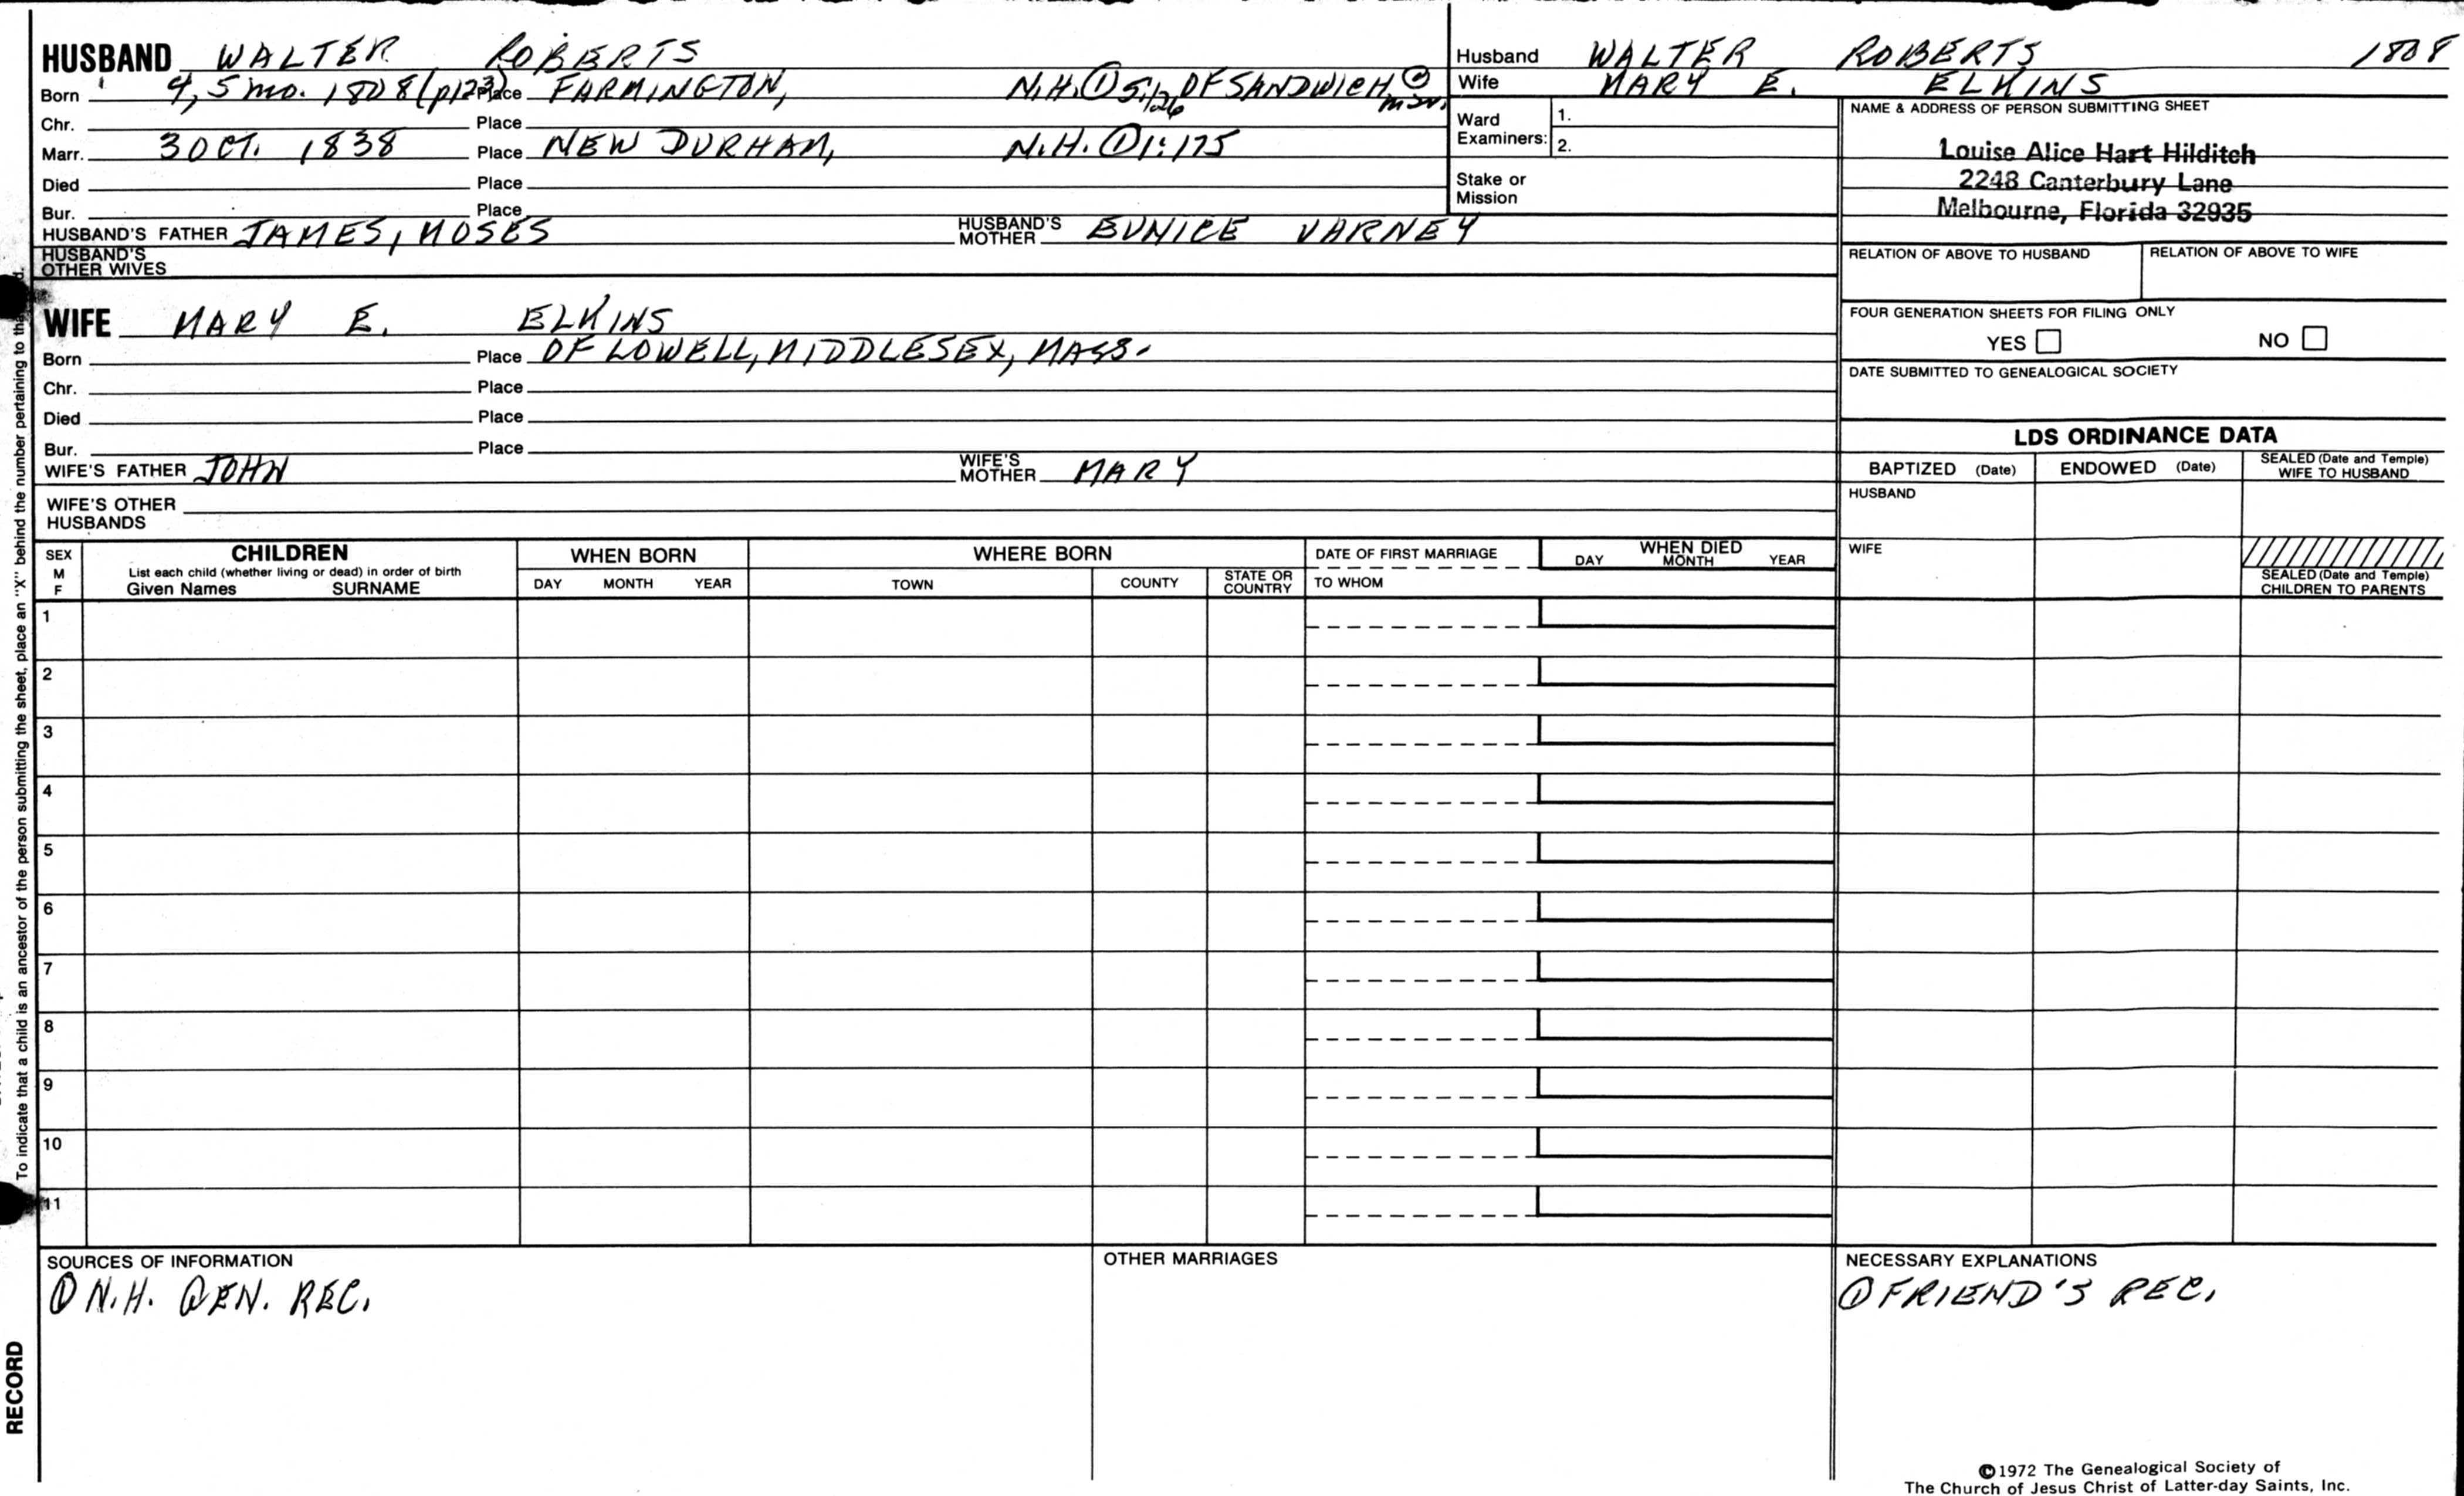 HUSBAND WALTER ROBERTS
Born 4, 5 mo. 1808 (p123) Place FARMINGTON, N.H. ① 5:126 OF SANDWICH @
Chr. Place
Marr. 3 OCT. 1838 Place NEW DURHAM, N.H. ① 1:175
Died Place
Bur. Place
HUSBAND'S FATHER JAMES, MOSES HUSBAND'S MOTHER EUNICE VARNEY
HUSBAND'S OTHER WIVES
WIFE MARY E. ELKINS
Born Place OF LOWELL, MIDDLESEX, MASS.
Chr. Place
Died Place
Bur. Place
WIFE'S FATHER JOHN WIFE'S MOTHER MARY
WIFE'S OTHER HUSBANDS
Husband WALTER ROBERTS 1808
Wife MARY E. ELKINS
Ward Examiners: 1.
2.
Stake or Mission
NAME & ADDRESS OF PERSON SUBMITTING SHEET
Louise Alice Hart Hilditch
2248 Canterbury Lane
Melbourne, Florida 32935
RELATION OF ABOVE TO HUSBAND RELATION OF ABOVE TO WIFE
FOUR GENERATION SHEETS FOR FILING ONLY
YES NO
DATE SUBMITTED TO GENEALOGICAL SOCIETY
LDS ORDINANCE DATA
BAPTIZED (Date) ENDOWED (Date) SEALED (Date and Temple) WIFE TO HUSBAND
HUSBAND
WIFE
SEALED (Date and Temple) CHILDREN TO PARENTS
SEX M F
CHILDREN
List each child (whether living or dead) in order of birth
Given Names SURNAME
WHEN BORN
DAY MONTH YEAR
WHERE BORN
TOWN COUNTY STATE OR COUNTRY
DATE OF FIRST MARRIAGE
TO WHOM
WHEN DIED
DAY MONTH YEAR
1
2
3
4
5
6
7
8
9
10
11
SOURCES OF INFORMATION
① N.H. GEN. REC.
OTHER MARRIAGES
NECESSARY EXPLANATIONS
① FRIEND'S REC.
©1972 The Genealogical Society of
The Church of Jesus Christ of Latter-day Saints, Inc.
To indicate that a child is an ancestor of the person submitting the sheet, place an "X" behind the number pertaining to
RECORD